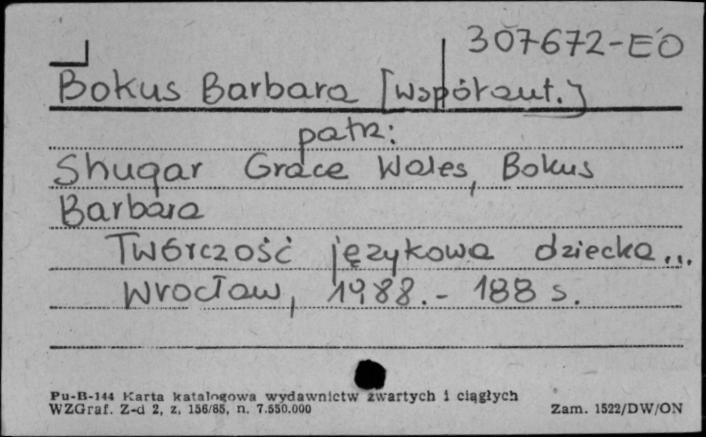 307672-EO
Bokus Barbara [współaut.]
patrz:
Shugar Grace Wales, Bokus
Barbara
Twórczość językowa dziecka...
Wrocław, 1988. - 188 s.
Pu-B-144 Karta katalogowa wydawnictw zwartych i ciągłych
WZGraf. Z-d 2, z. 156/85, n. 7.550.000
Zam. 1522/DW/ON